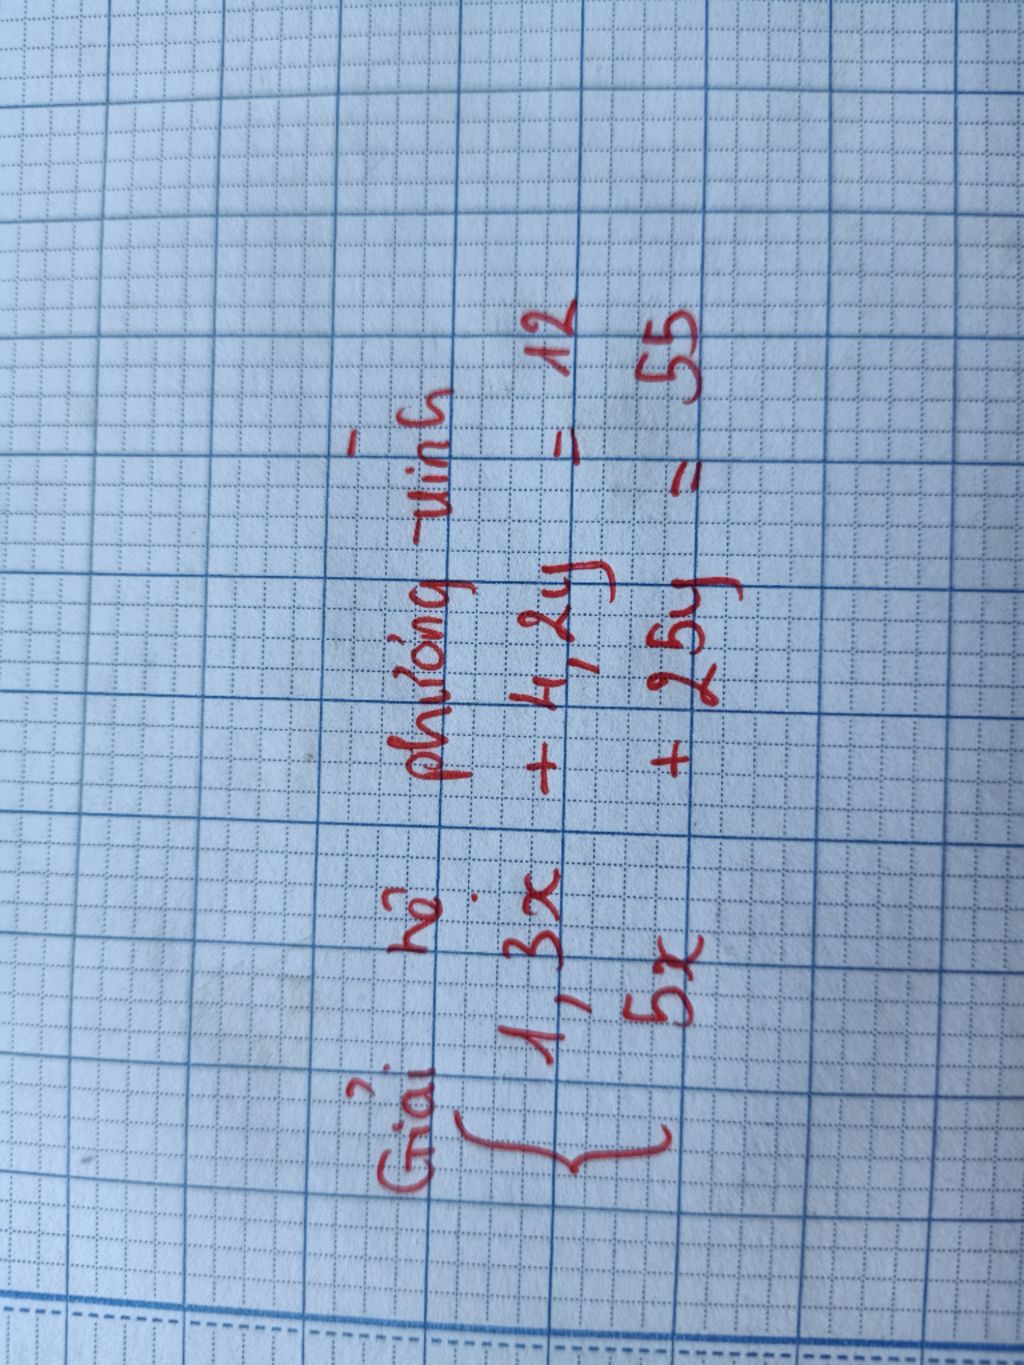 Giải hệ phương trình
{ 1,3x + 4,2y = 12
5x + 25y = 55